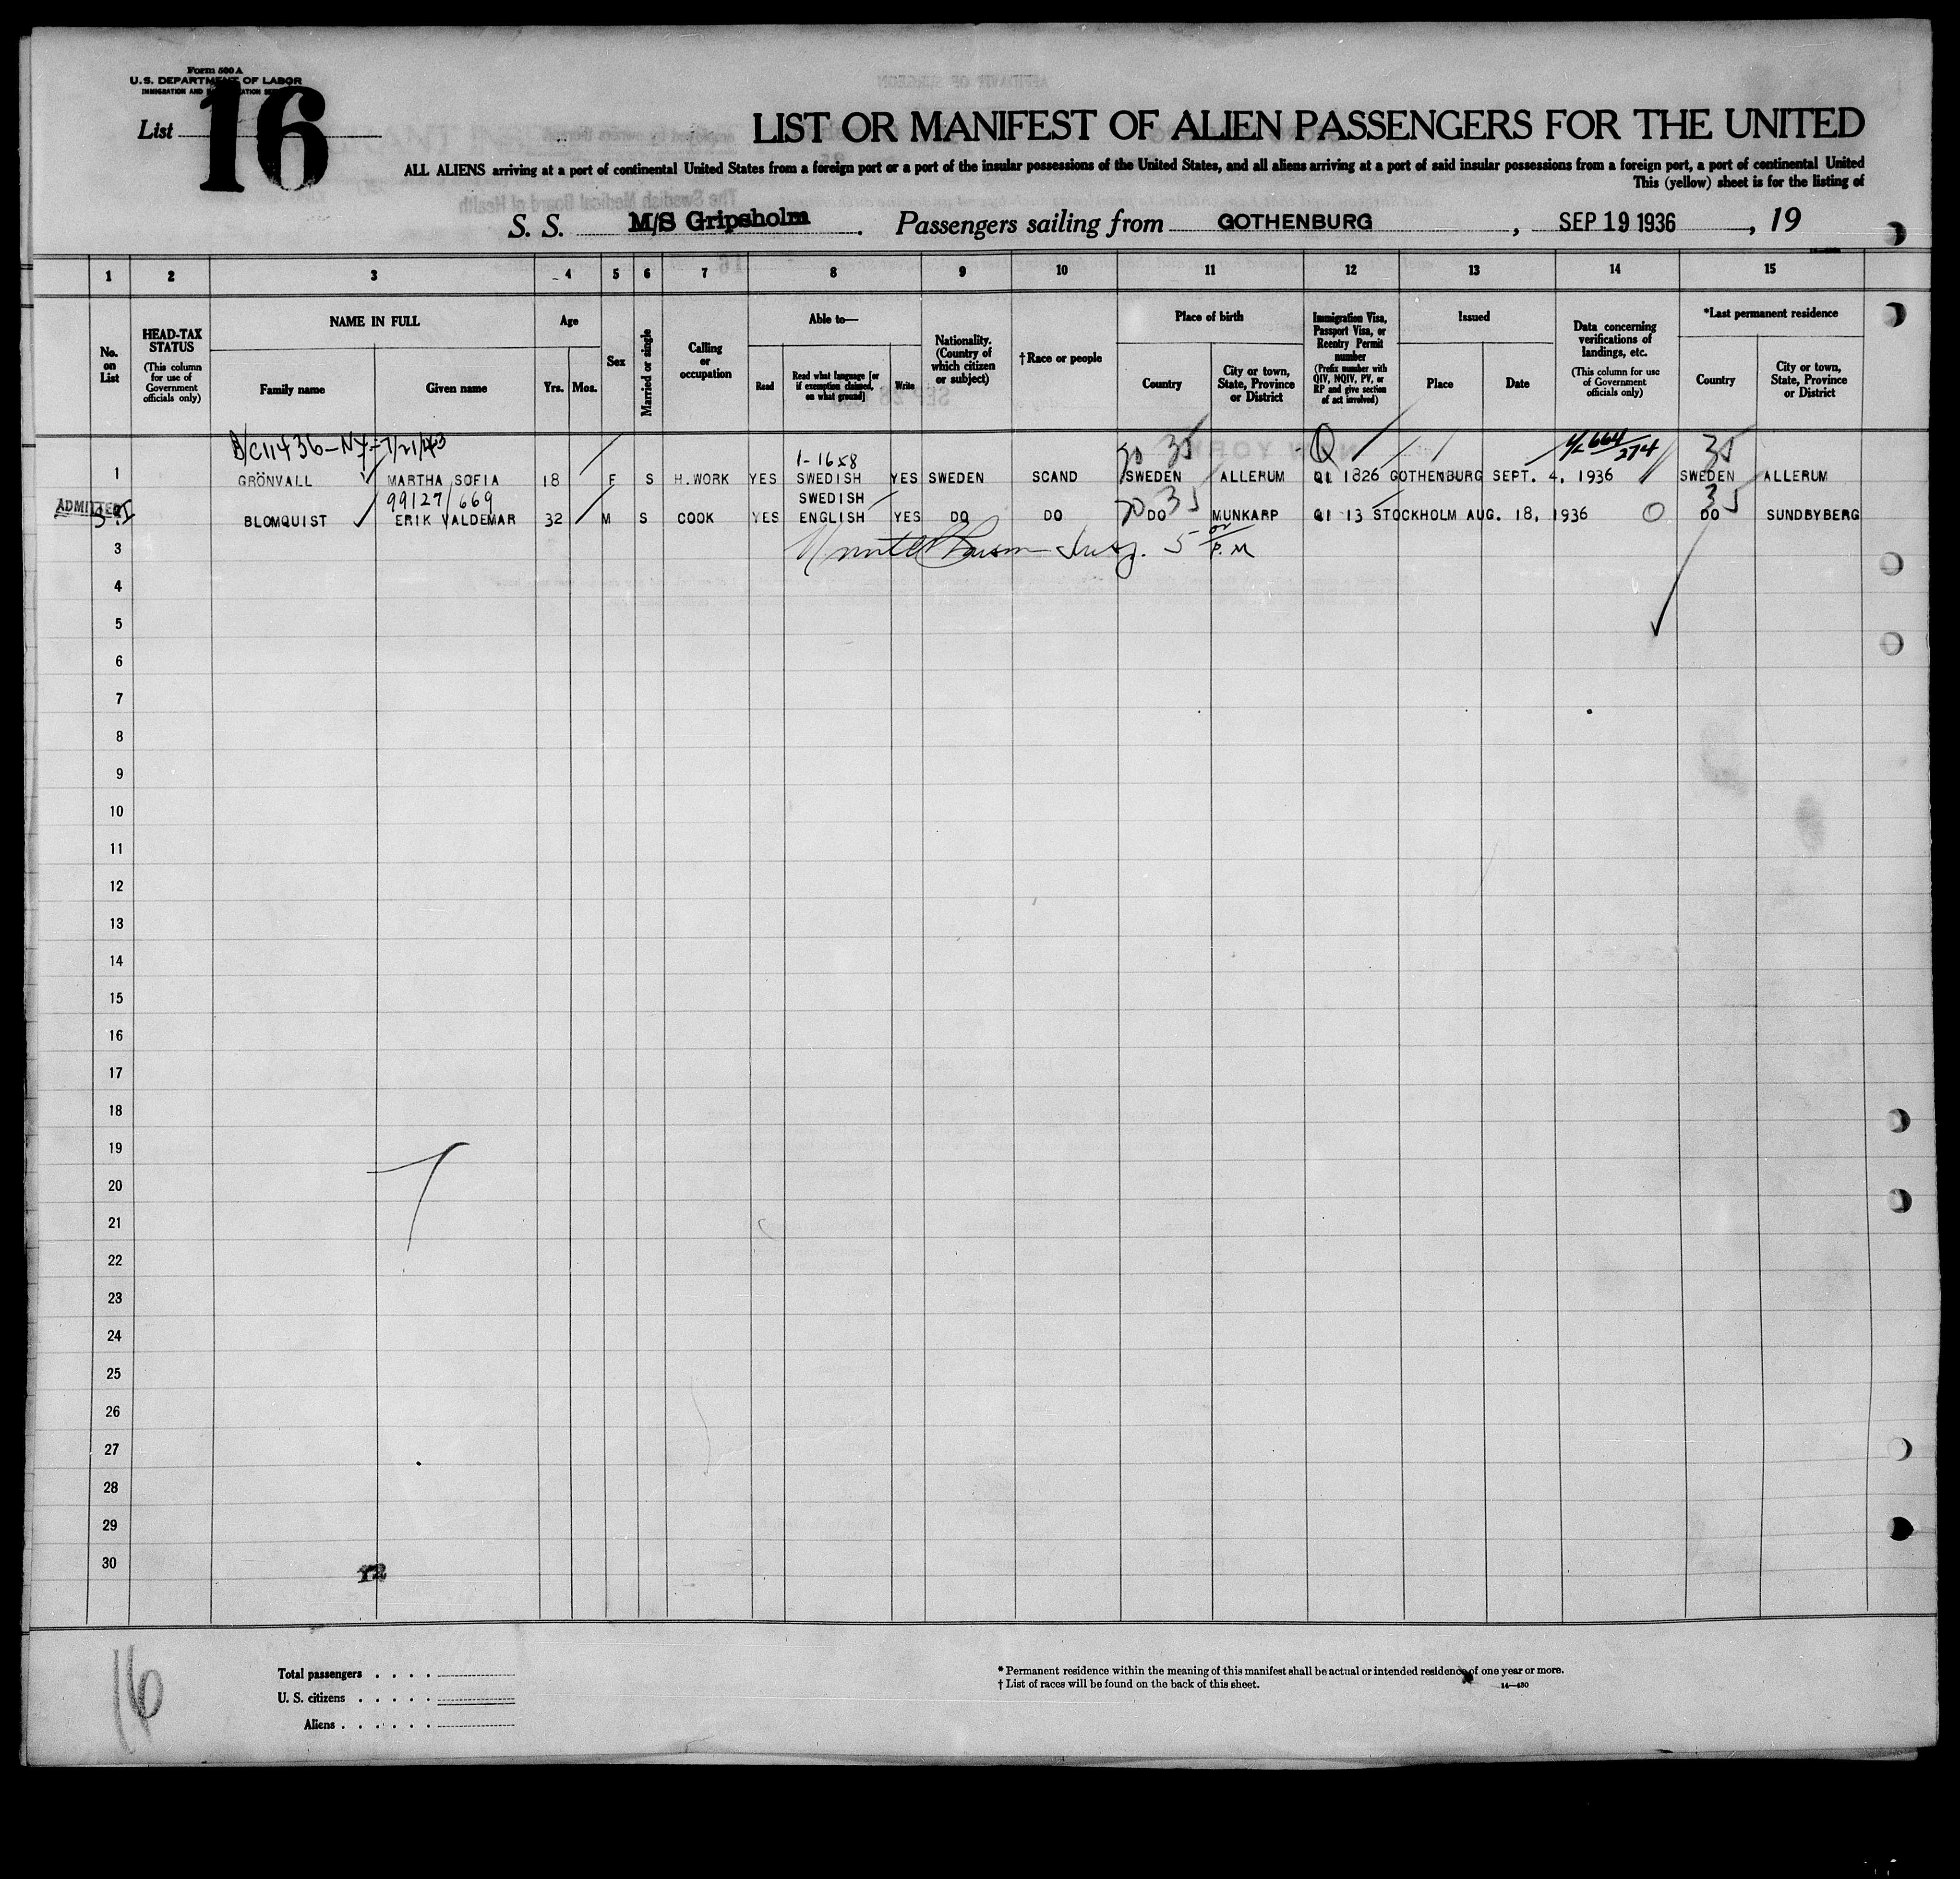 Form 500 A
U.S. DEPARTMENT OF LABOR
IMMIGRATION AND
List 16
LIST OR MANIFEST OF ALIEN PASSENGERS FOR THE UNITED
ALL ALIENS arriving at a port of continental United States from a foreign port or a port of the insular possessions of the United States, and all aliens arriving at a port of said insular possessions from a foreign port, a port of continental United
This (yellow) sheet is for the listing of
S. S. M/S Gripsholm. Passengers sailing from GOTHENBURG, SEP 19 1936, 19
1 2 3 4 5 6 7 8 9 10 11 12 13 14 15
No. on List
HEAD-TAX STATUS (This column for use of Government officials only)
NAME IN FULL
Family name
Given name
Age
Yrs. Mos.
Sex
Married or single
Calling or occupation
Able to—
Read
Read what language [or if exemption claimed, on what ground]
Write
Nationality. (Country of which citizen or subject)
†Race or people
Place of birth
Country
City or town, State, Province or District
Immigration Visa, Passport Visa, or Reentry Permit number (Prefix number with QIV, NQIV, PV, or RP and give section of act involved)
Issued
Place
Date
Data concerning verifications of landings, etc. (This column for use of Government officials only)
*Last permanent residence
Country
City or town, State, Province or District
1-1658 35 Q 664/274 35
1 GRÖNVALL MARTHA SOFIA 18 F S H.WORK YES SWEDISH YES SWEDEN SCAND SWEDEN ALLERUM QI 1826 GOTHENBURG SEPT. 4, 1936 SWEDEN ALLERUM
99127/669 SWEDISH 35 35
ADMITTED BLOMQUIST ERIK VALDEMAR 32 M S COOK YES ENGLISH YES DO DO DO MUNKARP QI 13 STOCKHOLM AUG. 18, 1936 O DO SUNDBYBERG
3
5 P.M
4
5
6
7
8
9
10
11
12
13
14
15
16
17
18
19
20
21
22
23
24
25
26
27
28
29
30
16
Total passengers . . . .
U. S. citizens . . . . .
Aliens . . . . . .
* Permanent residence within the meaning of this manifest shall be actual or intended residence of one year or more.
† List of races will be found on the back of this sheet.
14—430